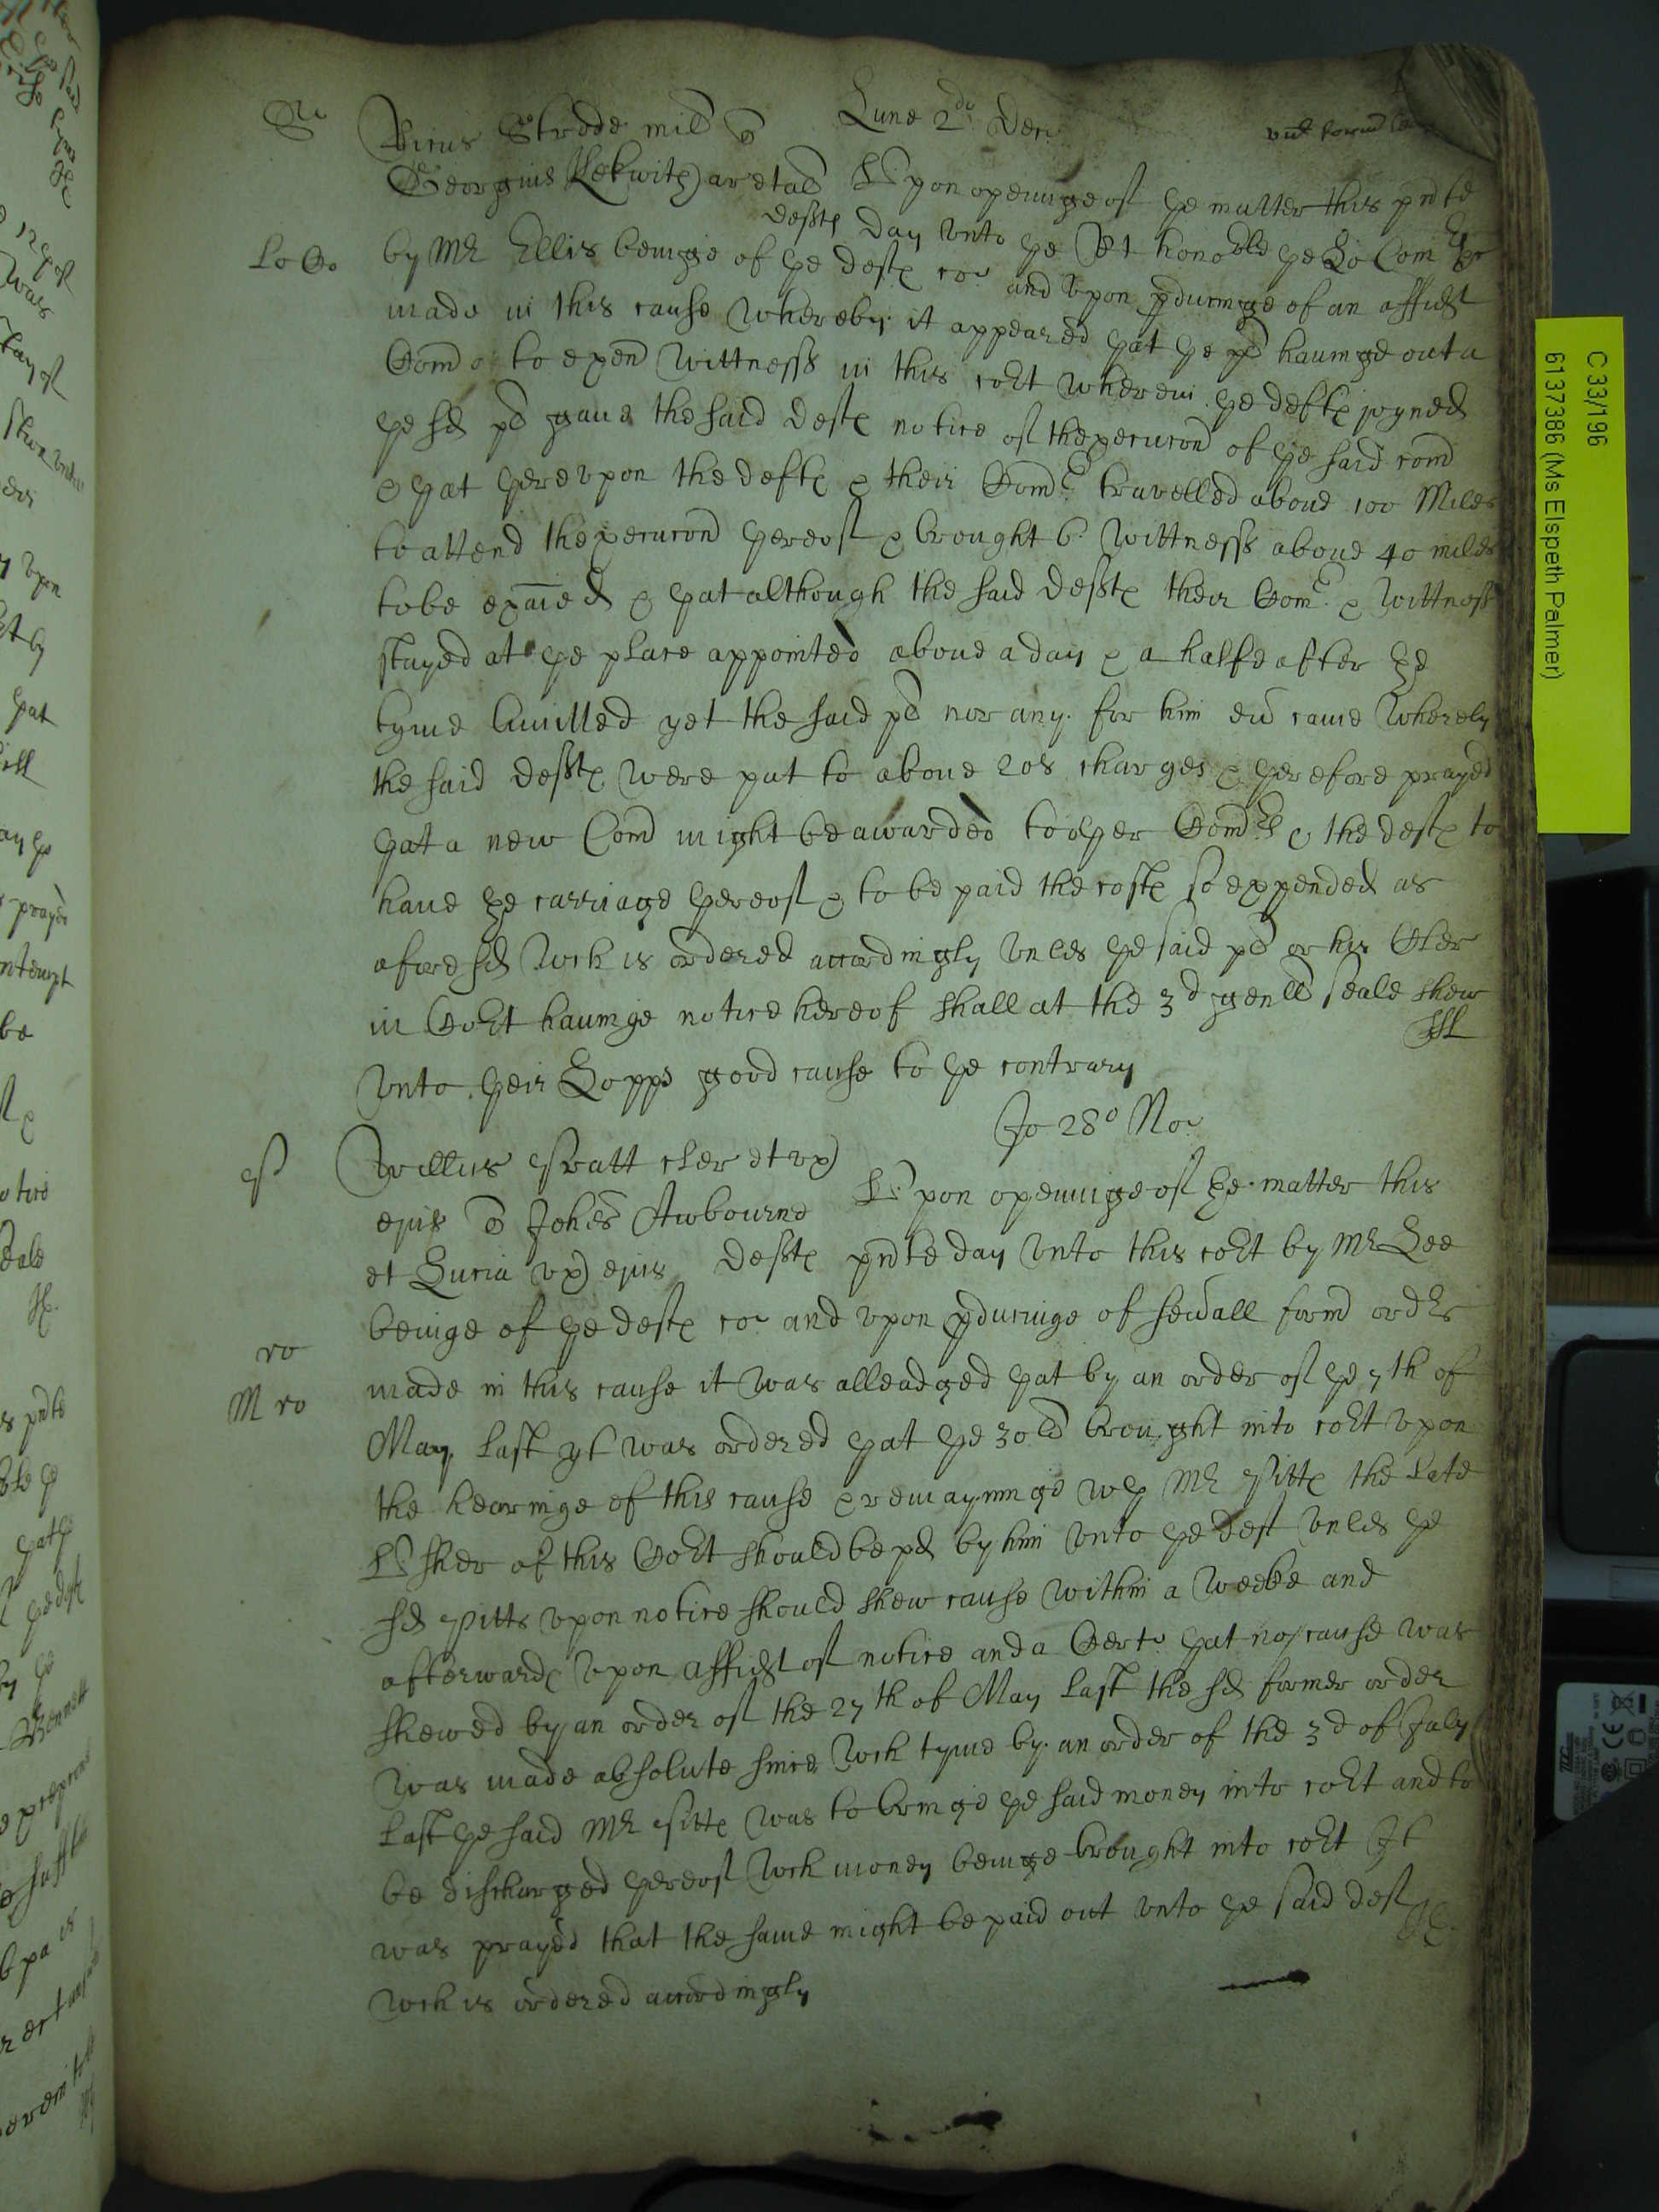 Lune 2do Dec
St Ricus Strode mil q
Georgius Lekwith ar et al Upon openinge of ye matter this pnte
defts day unto ye Rt honoble ye Lo Comrs
Lo Co by Mr Ellis beinge of ye defts co and upon pducinge of an affidt
made in this cause whereby it appeared yat ye pl havinge out a
Como to exen wittness in this cort wherein ye defts joyned
ye sd pl gave the said defts notice of thexecucon of ye said com
& yat yereupon the defts & their Comrs travelled above 100 Miles
to attend thexecucon yereof & brought 6 wittness above 40 miles
to be exaied & yat although the said defts their Comrs & wittness
stayed at ye place appointed above a day & a halfe after ye
tyme limitted yet the said pl nor any for him ev came whereby
the said defts were put to above 20s charges & yerefore prayed
yat a new Com might be awarded to oyer Comrs & the defts to
have ye carriage yereof & to be paid the costs so expended as
aforesd wch is ordered accordingly unles ye said pl or his Cler
in Cort havinge notice hereof shall at the 3d genll seale shew
unto yeir Lopps good cause to ye contrary
Jo 28o No
P Willus Pratt cler et ux
ejus q Johes Awbourne Upon openinge of ye matter this
et Lucia ux ejus defts pnte day unto this cort by Mr Lee
beinge of ye defts co and upon pducinge of sevall form ordrs
co
M co made in this cause it was alleadged yat by an order of ye 7th of
May last yt was ordered yat ye 30l brought into cort upon
the hearinge of this cause & remayninge wth Mr Pitts the late
Usher of this Cort should be pd by him unto ye deft unles ye
sd Pitts upon notice should shew cause within a weeke and
afterwards upon affidt of notice and a Certe yat no cause was
shewed by an order of the 27th of May last the sd former order
was made absolute since wch tyme by an order of the 3d of July
last ye said Mr Pitts was to bringe ye said money into cort and to
be discharged yereof wch money beinge brought into cort It
was prayed that the same might be paid out unto ye said deft
wch is ordered accordingly
C 33/196
6137386 (Ms Elspeth Palmer)